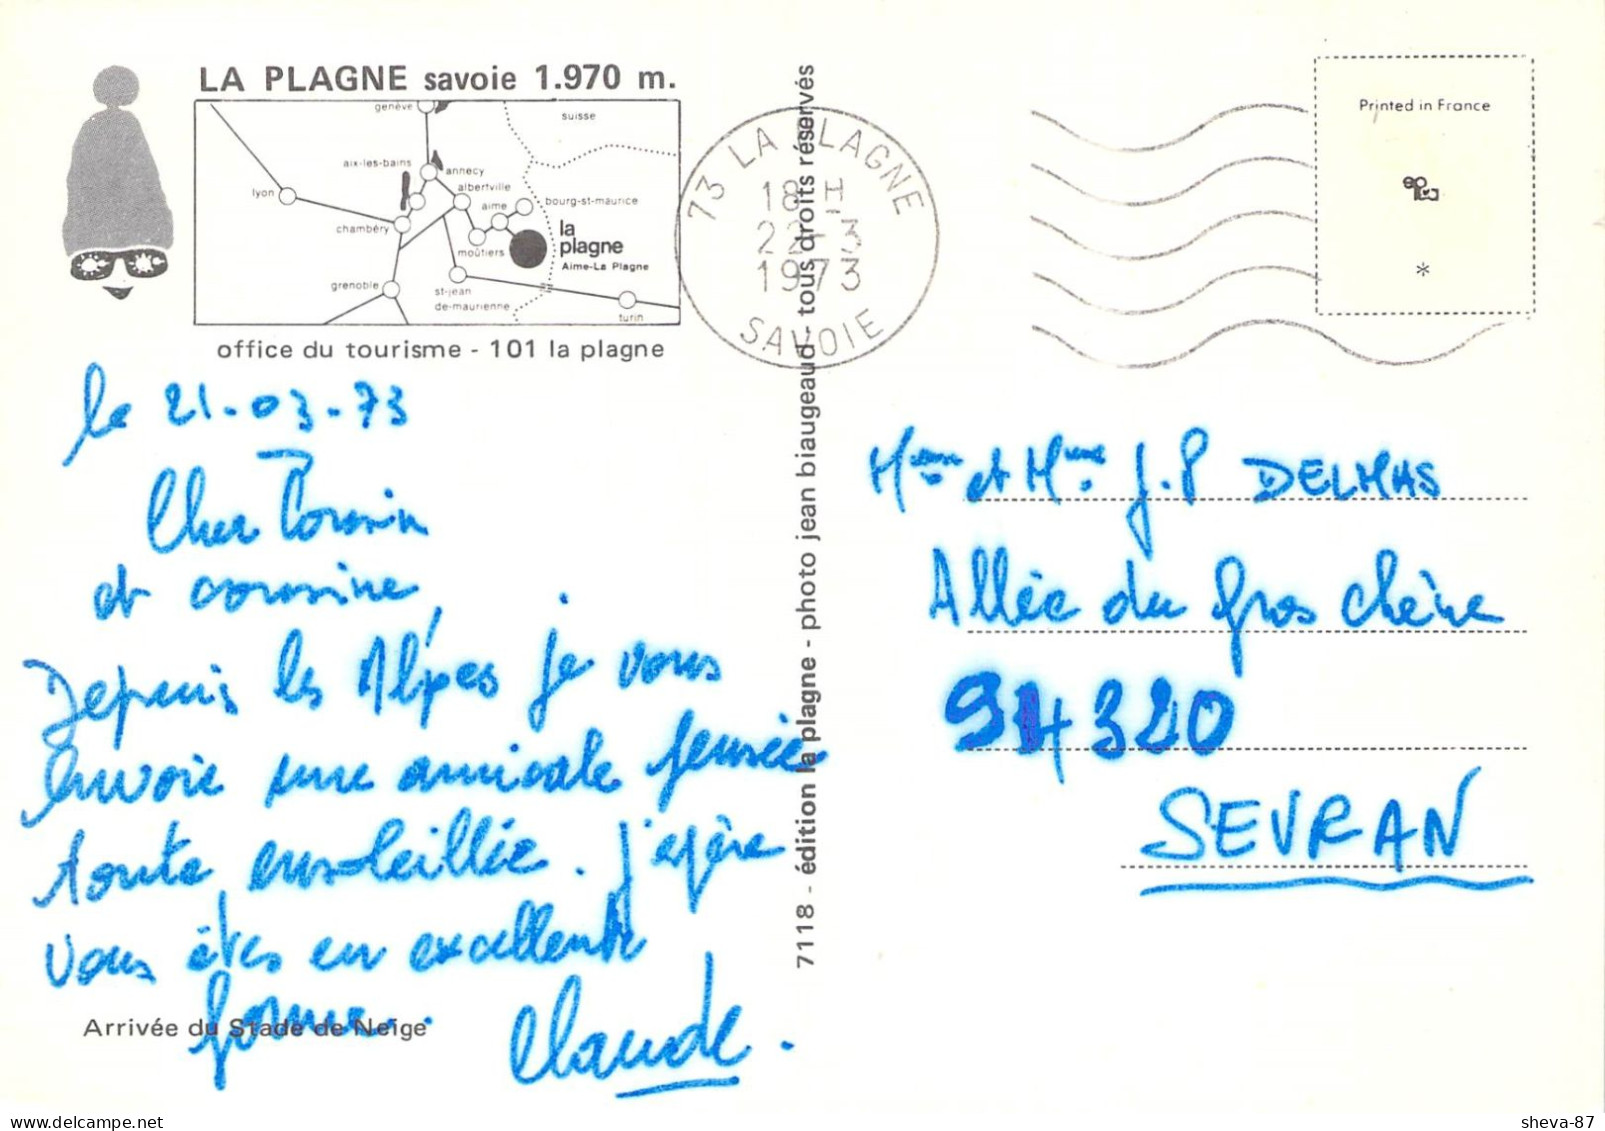 LA PLAGNE savoie 1.970 m.
genève
suisse
aix-les-bains
annecy
lyon
albertville
aime
bourg-st-maurice
chambéry
la
plagne
moûtiers
Aime-La Plagne
grenoble
st-jean
de-maurienne
turin
office du tourisme - 101 la plagne
73 LA PLAGNE
18 H
22-3
1973
SAVOIE
Printed in France
*
le 21-03-73
Cher Cousin
et cousine,
Depuis les Alpes je vous
envoie une amicale pensée
toute ensoleillée. J'espère
vous êtes en excellente
forme.
Claude.
Arrivée du Stade de Neige
7118 - édition la plagne - photo jean biaugeaud - tous droits réservés
et Mme J.P DELMAS
Allée du Gros chêne
320
SEVRAN
sheva-87